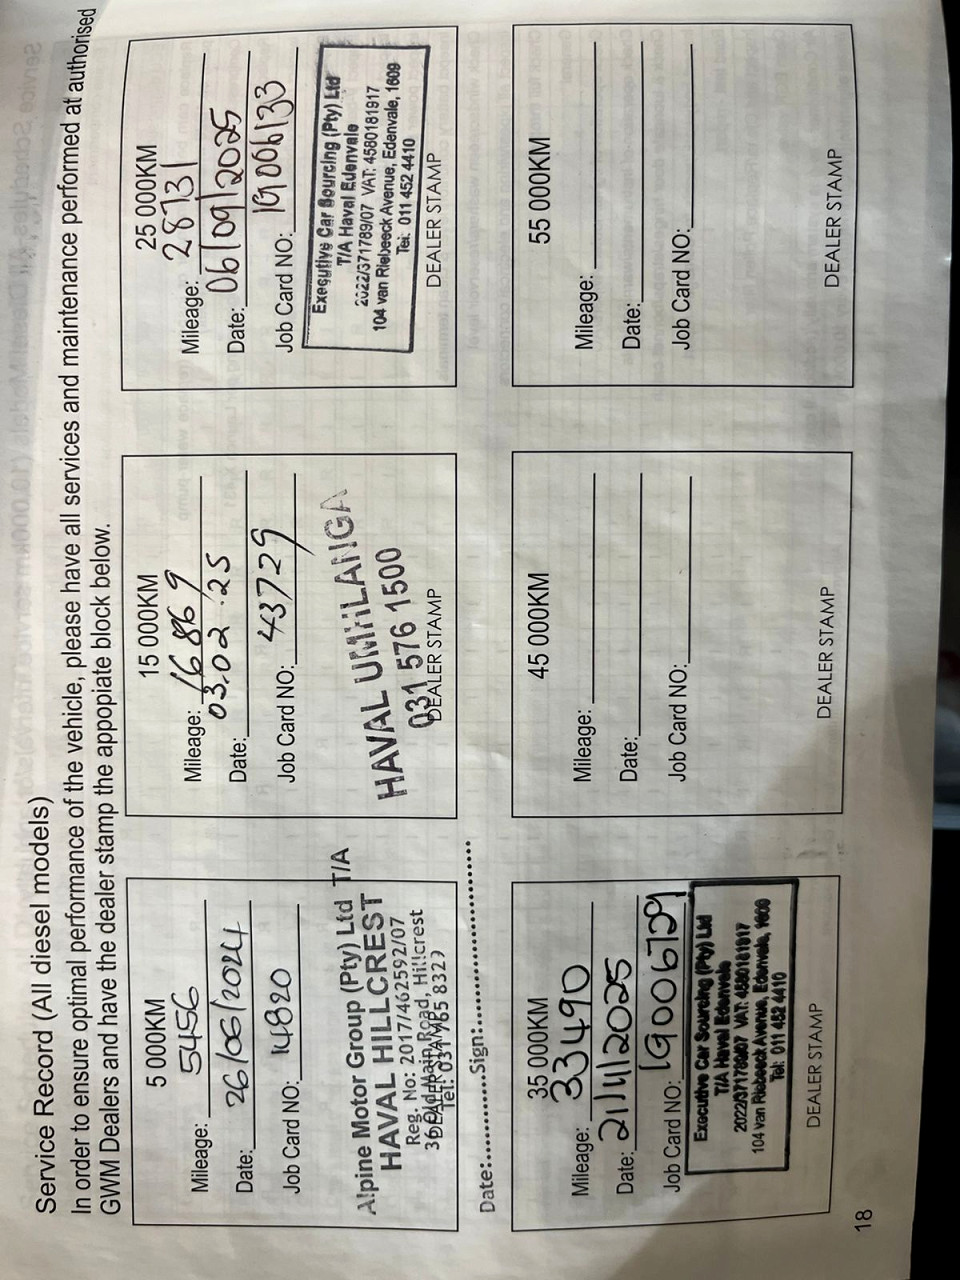 Service Record (All diesel models)
In order to ensure optimal performance of the vehicle, please have all services and maintenance performed at authorised
GWM Dealers and have the dealer stamp the appopiate block below.
5 000KM
Mileage: 5456
Date: 26/06/2024
Job Card NO: 14820
Alpine Motor Group (Pty) Ltd T/A
HAVAL HILLCREST
Reg. No: 2017/462592/07
36 Old Main Road, Hillcrest
DEALER STAMP
Tel: 031 765 8327
Date:............Sign:............................
15 000KM
Mileage: 16869
Date: 03.02.25
Job Card NO: 43729
HAVAL UMHLANGA
031 576 1500
DEALER STAMP
25 000KM
Mileage: 28731
Date: 06/09/2025
Job Card NO: 19006133
Executive Car Sourcing (Pty) Ltd
T/A Haval Edenvale
2022/371789/07 VAT: 4580181917
104 van Riebeeck Avenue, Edenvale, 1609
Tel: 011 452 4410
DEALER STAMP
35 000KM
Mileage: 33490
Date: 21/11/2025
Job Card NO: 19006729
Executive Car Sourcing (Pty) Ltd
T/A Haval Edenvale
2022/371789/07 VAT: 4580181917
104 van Riebeeck Avenue, Edenvale, 1609
Tel: 011 452 4410
DEALER STAMP
45 000KM
Mileage:
Date:
Job Card NO:
DEALER STAMP
55 000KM
Mileage:
Date:
Job Card NO:
DEALER STAMP
18